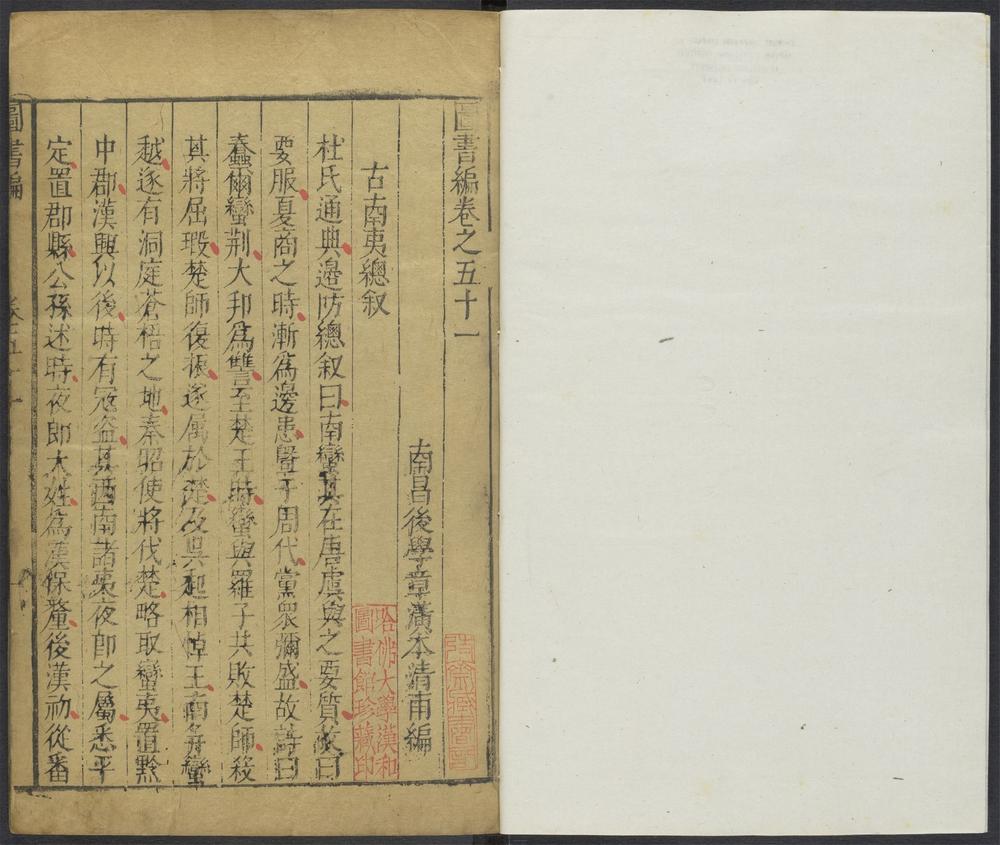 圖書編卷之五十一
南昌後學章潢本清甫編
古南夷總叙
杜氏通典邊防總叙曰南蠻其在唐虞與之要質故曰
要服夏商之時漸爲邊患曁于周代黨衆彌盛故詩曰
蠢爾蠻荆大邦爲讐至楚王時蠻與羅子共敗楚師殺
其將屈瑕楚師復振遂屬於楚及吳起相悼王南并蠻
越遂有洞庭蒼梧之地秦昭使將伐楚略取蠻夷置黔
中郡漢興以後時有寇盗其西南諸夷夜郎之屬悉平
定置郡縣公孫述時夜郎大姓爲漢保釐後漢初從番
圖書編
哈佛大學漢和
圖書館珍藏印